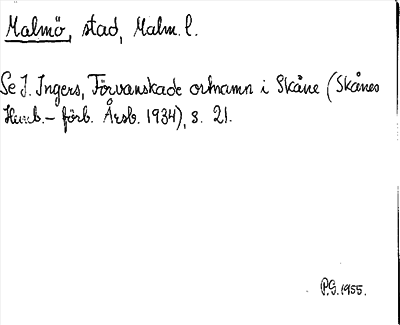 Malmö, stad, Malm. l.
Se I. Ingers, Förvanskade ortnamn i Skåne (Skånes
Hemb.- förb. Årsb. 1934), s. 21.
P.G. 1955.